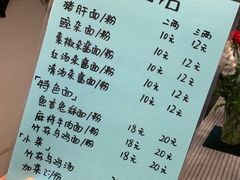 二两 三两
猪肝面/粉 10元 12元
豌杂面/粉 10元 12元
素椒杂酱面/粉 10元 12元
红汤杂酱面/粉 10元 12元
清汤杂酱面/粉 10元 12元
「特色面」
鱼香兔丝面/粉 18元 20元
麻辣牛肉面/粉 18元 20元
竹荪乌鸡面/粉 18元 20元
「小菜」
竹荪乌鸡汤
加菜